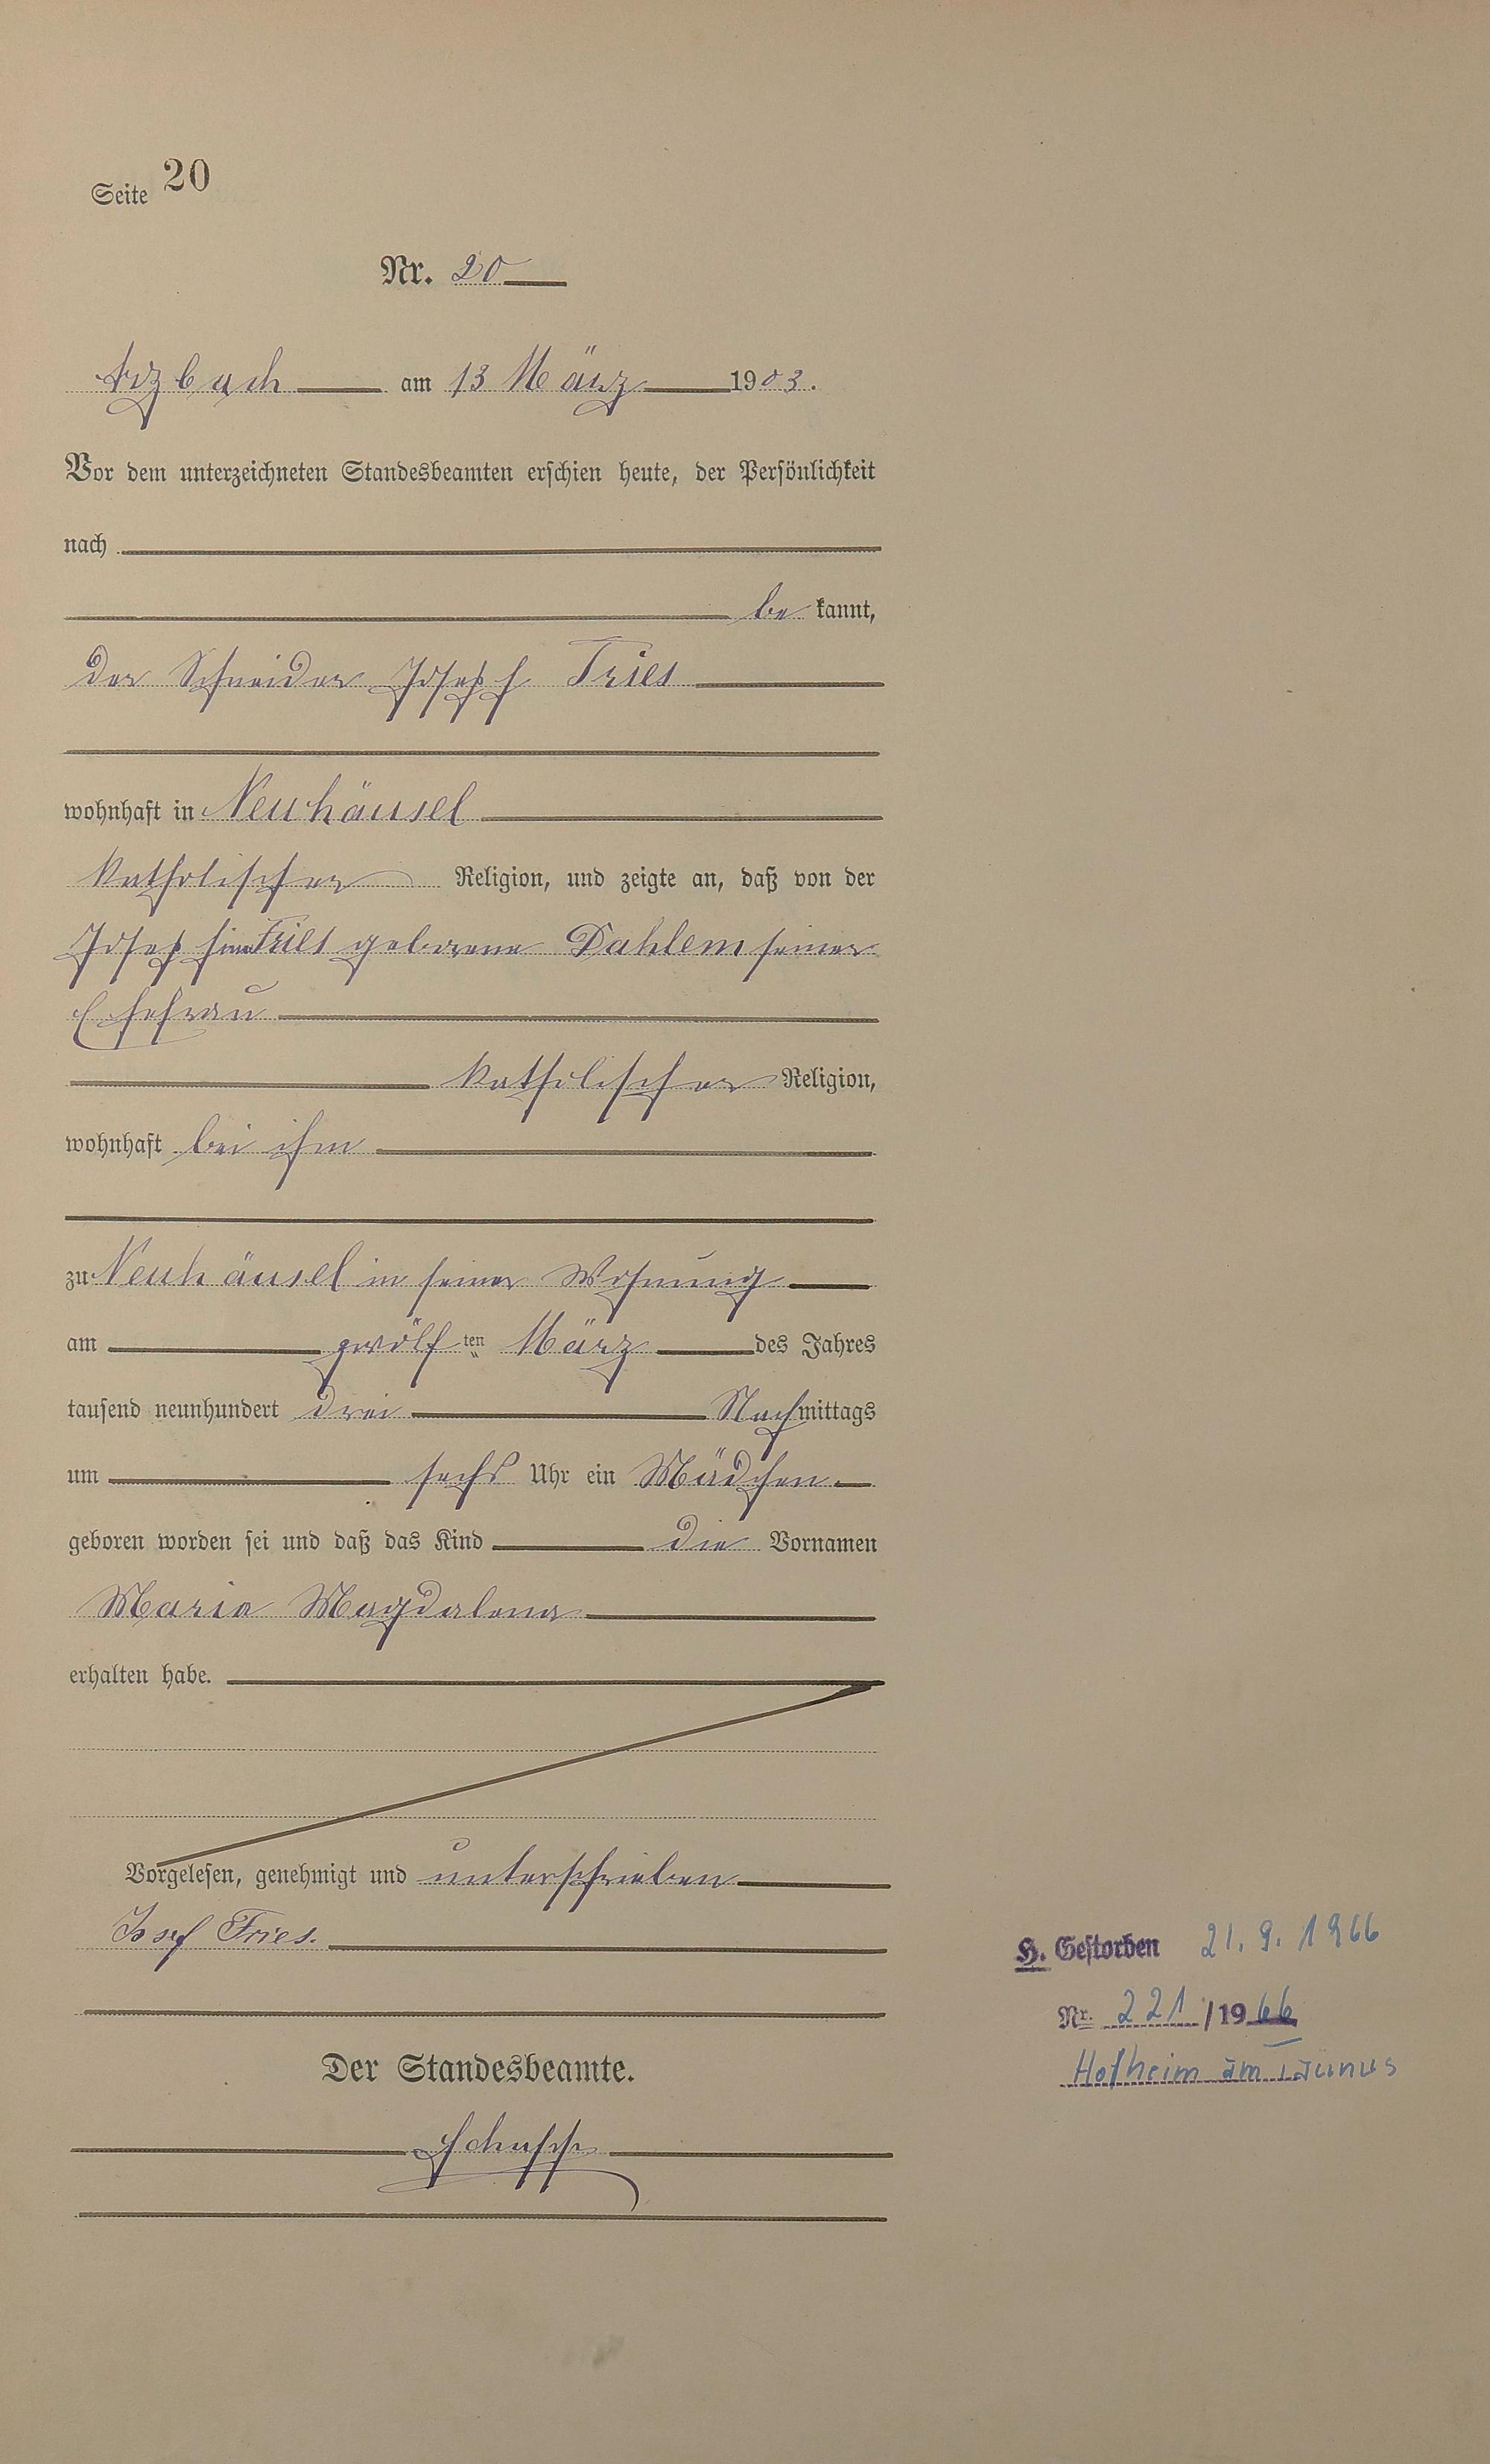 Seite 20
Nr. 20
Arzbach am 13 März 1903.
Vor dem unterzeichneten Standesbeamten erschien heute, der Persönlichkeit
nach
be kannt,
der Schneider Joseph Fries
wohnhaft in Neuhäusel
katholischer Religion, und zeigte an, daß von der
Josephine Fries geborene Dahlem seiner
Ehefrau
katholischer Religion,
wohnhaft bei ihm
zu Neuhäusel in seiner Wohnung
am zwölf ten März des Jahres
tausend neunhundert drei Nachmittags
um sechs Uhr ein Mädchen
geboren worden sei und daß das Kind die Vornamen
Maria Magdalena
erhalten habe.
Vorgelesen, genehmigt und unterschrieben
Josef Fries.
H. Gestorben 21.9.1966
Nr. 221 / 1966
Hofheim am Taunus
Der Standesbeamte.